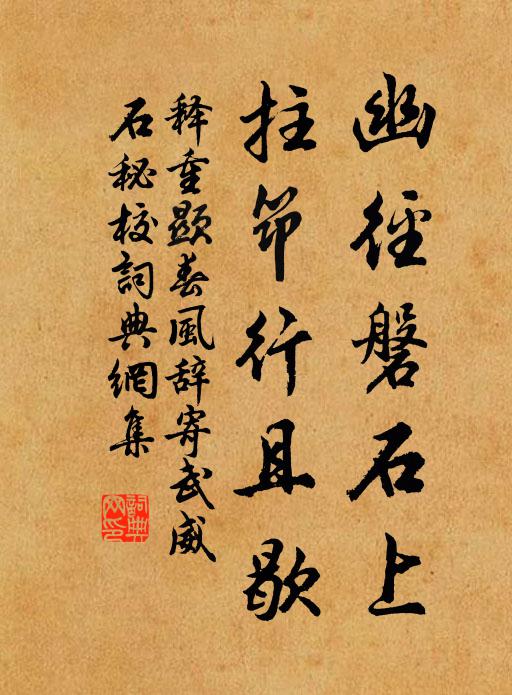 幽徑磐石上
拄笻行且歇
释重顯春風辞寄武威
石秘校詞典網集
詞典網印